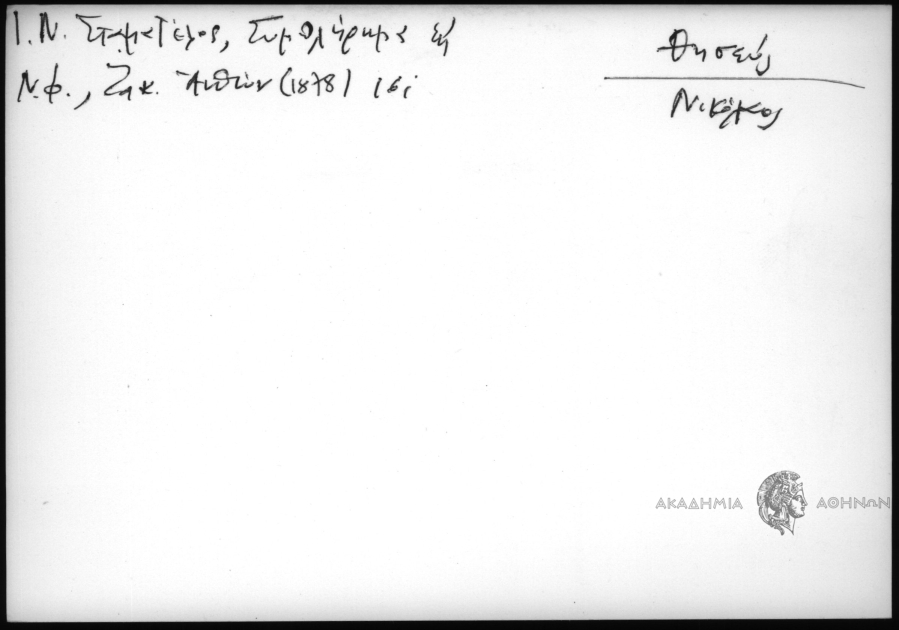 Ι.Ν. Σταματέλος, Συμπλήρωμα εἰς
Ν.Φ., Ζακ. Ἀνθών (1878) 161
Θησεύς
Νικόλαος
ΑΚΑΔΗΜΙΑ ΑΘΗΝΩΝ